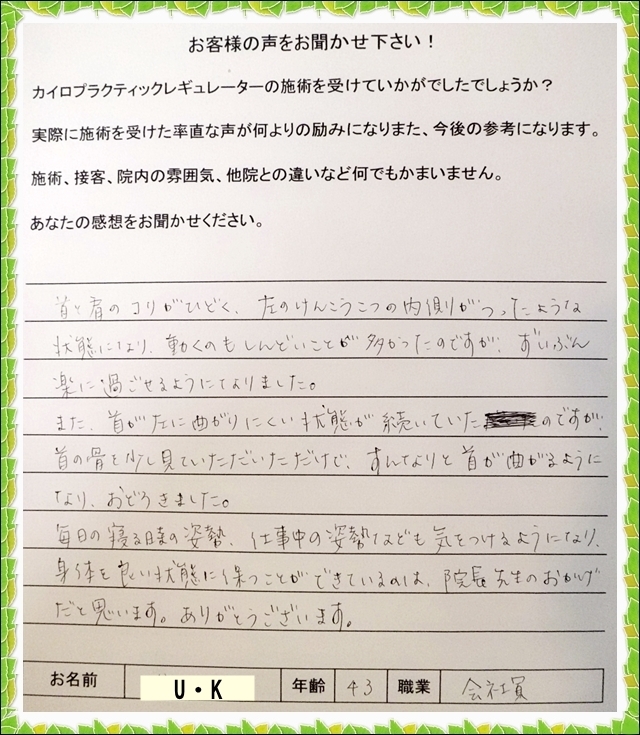 お客様の声をお聞かせ下さい！
カイロプラクティックレギュレーターの施術を受けていかがでしたでしょうか？
実際に施術を受けた率直な声が何よりの励みになりまた、今後の参考になります。
施術、接客、院内の雰囲気、他院との違いなど何でもかまいません。
あなたの感想をお聞かせください。
首と肩のコリがひどく、左のけんこうこつの内側がつったような
状態になり、動くのもしんどいことが多かったのですが、ずいぶん
楽に過ごせるようになりました。
また、首が左に曲がりにくい状態が続いていたのですが、
首の骨を少し見ていただいただけで、すんなりと首が曲がるように
なり、おどろきました。
毎日の寝る時の姿勢、仕事中の姿勢なども気をつけるようになり、
身体を良い状態に保つことができているのは、院長先生のおかげ
だと思います。ありがとうございます。
お名前 U・K 年齢 43 職業 会社員